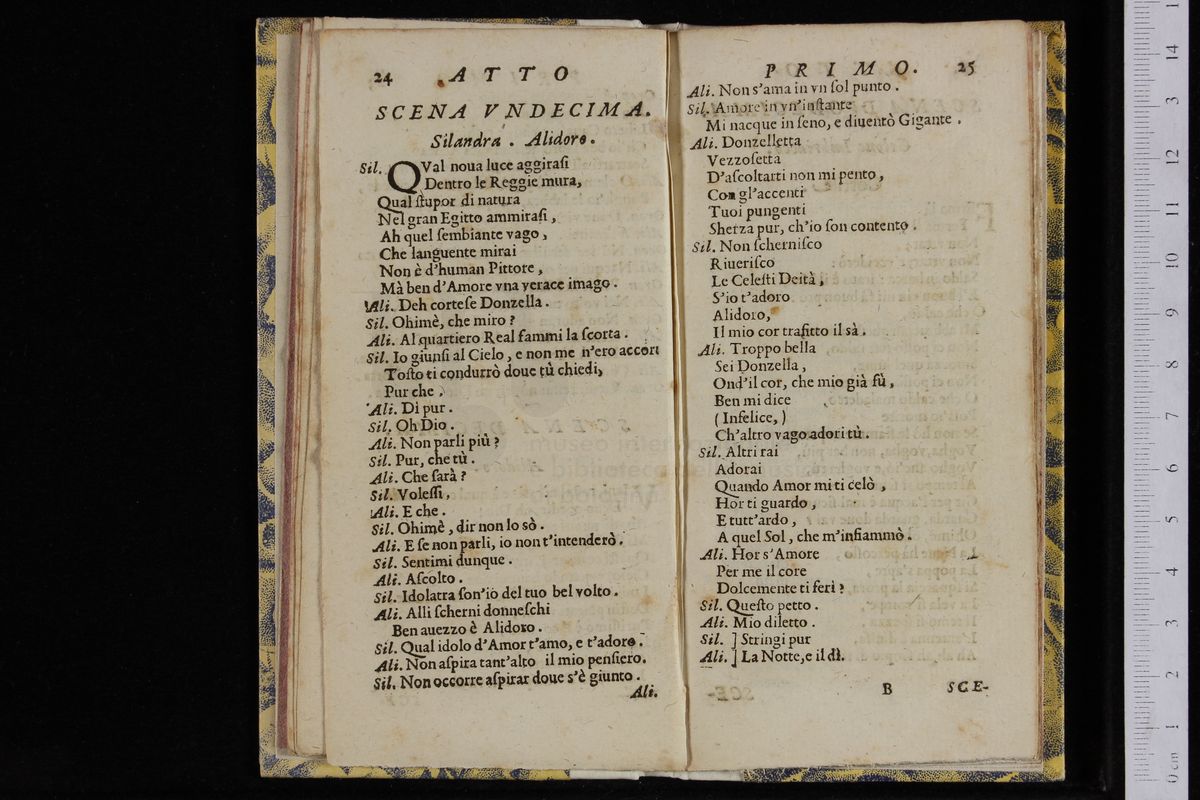 24 ATTO
SCENA VNDECIMA.
Silandra. Alidoro.
Sil. QVal noua luce aggirasi
Dentro le Reggie mura,
Qual ſtupor di natura
Nel gran Egitto ammiraſi,
Ah quel ſembiante vago,
Che languente mirai
Non è d'human Pittore,
Mà ben d'Amore vna verace imago.
Ali. Deh corteſe Donzella.
Sil. Ohimè, che miro?
Ali. Al quartiero Real fammi la ſcorta.
Sil. Io giunſi al Cielo, e non me n'ero accort
Toſto ti condurrò doue tù chiedi,
Pur che,
Ali. Di pur.
Sil. Oh Dio.
Ali. Non parli più?
Sil. Pur, che tù.
Ali. Che ſarà?
Sil. Voleſſi,
Ali. E che.
Sil. Ohimè, dir non lo sò.
Ali. E ſe non parli, io non t'intenderò.
Sil. Sentimi dunque.
Ali. Aſcolto.
Sil. Idolatra ſon'io del tuo bel volto.
Ali. Alli ſcherni donneſchi
Ben auezzo è Alidoro.
Sil. Qual idolo d'Amor t'amo, e t'adoro.
Ali. Non aſpira tant'alto il mio penſiero.
Sil. Non occorre aſpirar doue s'è giunto.
Ali.
PRIMO. 25
Ali. Non s'ama in vn ſol punto.
Sil. Amore in vn'inſtante
Mi nacque in ſeno, e diuentò Gigante.
Ali. Donzelletta
Vezzoſetta
D'aſcoltarti non mi pento,
Con gl'accenti
Tuoi pungenti
Sherza pur, ch'io ſon contento.
Sil. Non ſcherniſco
Riueriſco
Le Celeſti Deità,
S'io t'adoro
Alidoro,
Il mio cor trafitto il sà.
Ali. Troppo bella
Sei Donzella,
Ond'il cor, che mio già fù,
Ben mi dice
(Infelice,)
Ch'altro vago adori tù.
Sil. Altri rai
Adorai
Quando Amor mi ti celò,
Hor ti guardo,
E tutt'ardo,
A quel Sol, che m'infiammò.
Ali. Hor s'Amore
Per me il core
Dolcemente ti ferì?
Sil. Queſto petto.
Ali. Mio diletto.
Sil. ] Stringi pur
Ali. ] La Notte, e il dì.
B SCE-